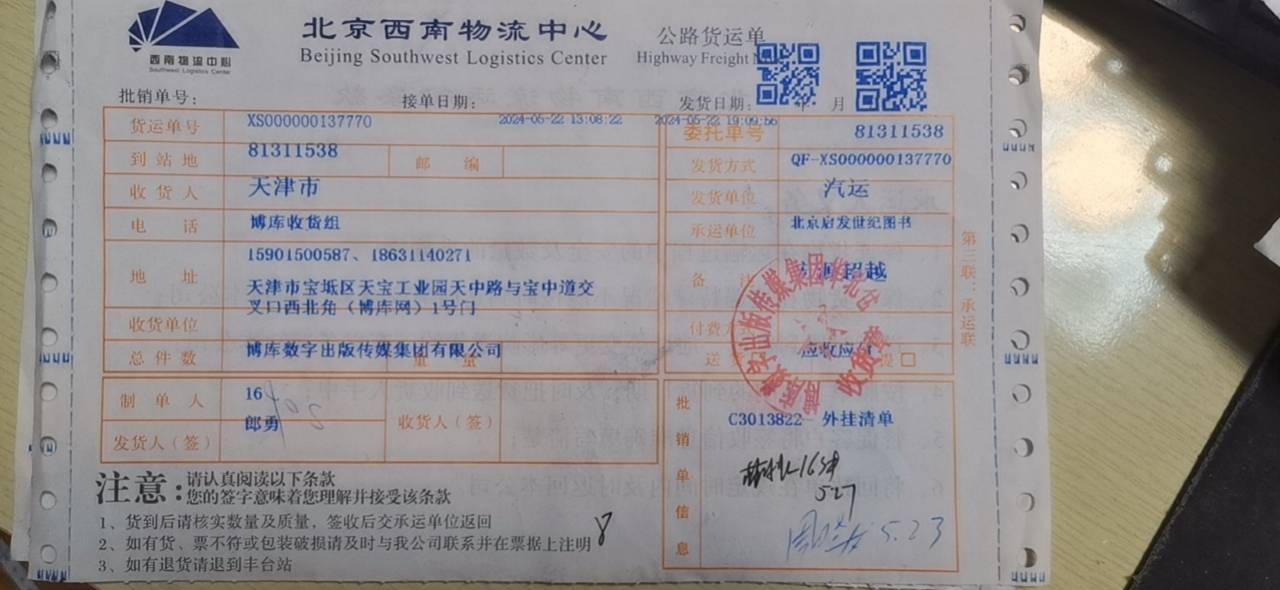 西南物流中心
Southwest Logistics Center
北京西南物流中心
Beijing Southwest Logistics Center
公路货运单
Highway Freight
批销单号：
接单日期：
发货日期：
年 月
2024-05-22 13:08:22
2024-05-22 19:09:56
货运单号
XS000000137770
委托单号
81311538
到站地
81311538
邮 编
发货方式
QF-XS000000137770
收货人
天津市
发货单位
汽运
电 话
博库收货组
承运单位
北京启发世纪图书
地 址
15901500587、18631140271
天津市宝坻区天宝工业园天中路与宝中道交
叉口西北角（博库网）1号门
备
超越
收货单位
付费方
总件数
博库数字出版传媒集团有限公司
重 量
送
应收应
提 □
制单人
16
郎勇
收货人（签）
发货人（签）
批销单信息
C3013822- 外挂清单
5.27
5.23
第三联：承运联
收货章
注意：
请认真阅读以下条款
您的签字意味着您理解并接受该条款
1、货到后请核实数量及质量，签收后交承运单位返回
2、如有货、票不符或包装破损请及时与我公司联系并在票据上注明
8
3、如有退货请退到丰台站